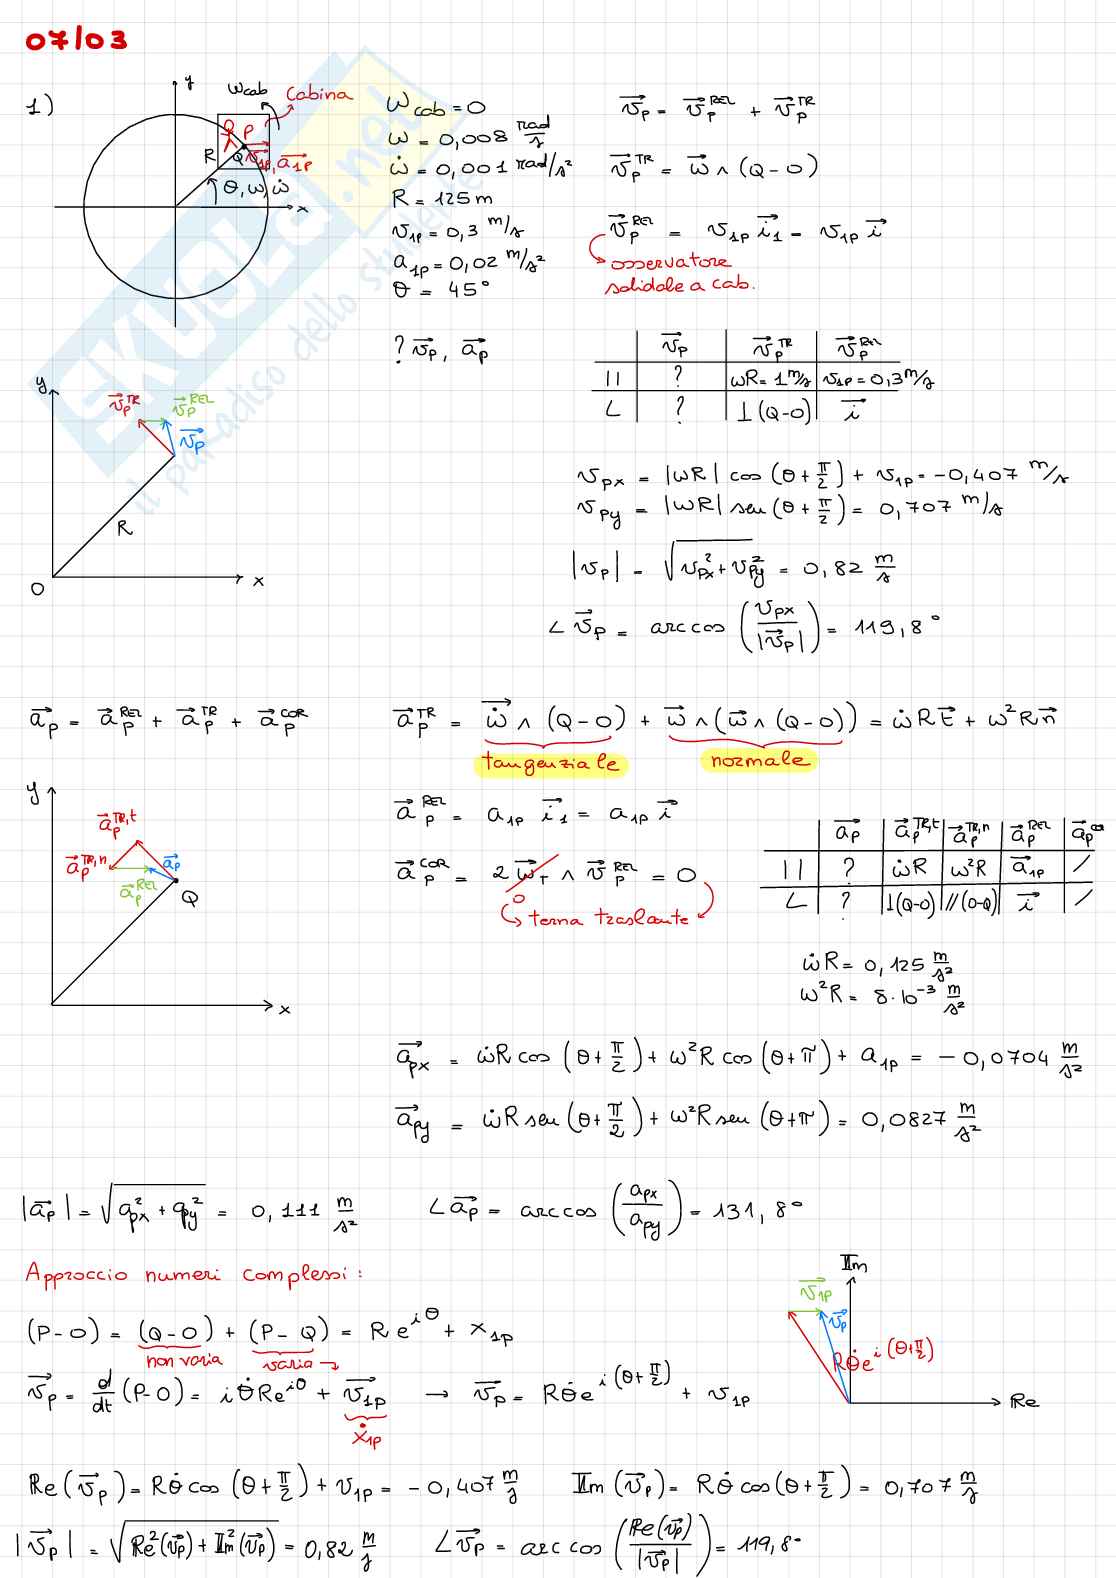 07/03
1)
y
ωcab
Cabina
R
P
Q
v1P, a1P
θ, ω, ω̇
x
ωcab = 0
ω = 0,008 rad/s
ω̇ = 0,001 rad/s²
R = 125 m
v1P = 0,3 m/s
a1P = 0,02 m/s²
θ = 45°
? vP, aP
vP = vP^REL + vP^TR
vP^TR = ω ∧ (Q-O)
vP^REL = v1P i1 = v1P i
osservatore
solidale a cab.
vP | vP^TR | vP^REL
|| | ? | ωR = 1 m/s | v1P = 0,3 m/s
∠ | ? | ⊥(Q-O) | i
y
vP^TR
vP^REL
vP
R
O
x
vPx = |ωR| cos(θ+π/2) + v1P = -0,407 m/s
vPy = |ωR| sen(θ+π/2) = 0,707 m/s
|vP| = √(vPx² + vPy²) = 0,82 m/s
∠vP = arccos(vPx/|vP|) = 119,8°
aP = aP^REL + aP^TR + aP^COR
aP^TR = ω̇ ∧ (Q-O) + ω ∧ (ω ∧ (Q-O)) = ω̇R t + ω²R n
tangenziale
normale
y
aP^TR,t
aP^TR,n
aP
aP^REL
Q
x
aP^REL = a1P i1 = a1P i
aP^COR = 2 ωT ∧ vP^REL = 0
0
terna traslante
aP | aP^TR,t | aP^TR,n | aP^REL | aP^COR
|| | ? | ω̇R | ω²R | a1P | /
∠ | ? | ⊥(Q-O) | //(O-Q) | i | /
ω̇R = 0,125 m/s²
ω²R = 8·10⁻³ m/s²
aPx = ω̇R cos(θ+π/2) + ω²R cos(θ+π) + a1P = -0,0704 m/s²
aPy = ω̇R sen(θ+π/2) + ω²R sen(θ+π) = 0,0827 m/s²
|aP| = √(aPx² + aPy²) = 0,111 m/s²
∠aP = arccos(aPx/aPy) = 131,8°
Approccio numeri complessi:
(P-O) = (Q-O) + (P-Q) = R e^iθ + x1P
non varia
varia →
vP = d/dt (P-O) = i θ̇ R e^iθ + v1P → vP = Rθ̇ e^i(θ+π/2) + v1P
ẋ1P
Im
v1P
vP
Rθ̇e^i(θ+π/2)
Re
Re(vP) = Rθ̇ cos(θ+π/2) + v1P = -0,407 m/s
Im(vP) = Rθ̇ cos(θ+π/2) = 0,707 m/s
|vP| = √(Re²(vP) + Im²(vP)) = 0,82 m/s
∠vP = arccos(Re(vP)/|vP|) = 119,8°
SKUOLA.net
il paradiso dello studente